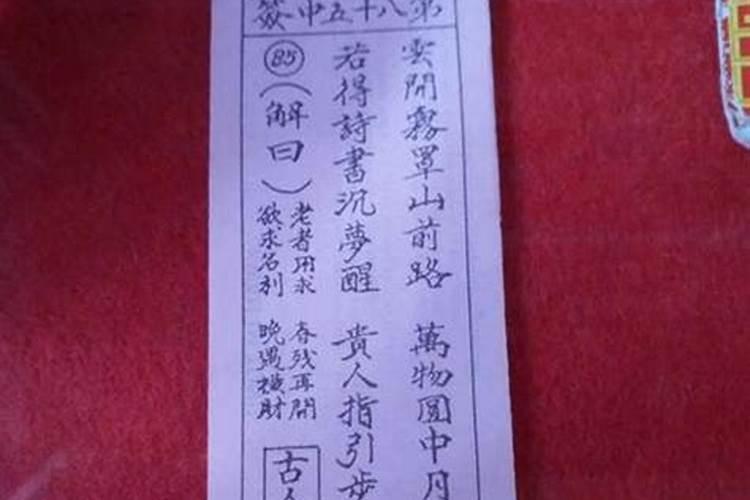 第八十五中簽
雲開霧罩山前路 萬物圓中月
若得詩書沉夢醒 貴人指引步
85
(解曰)
老者用求 春残再開
欲求名利 晩遇橫財
古人